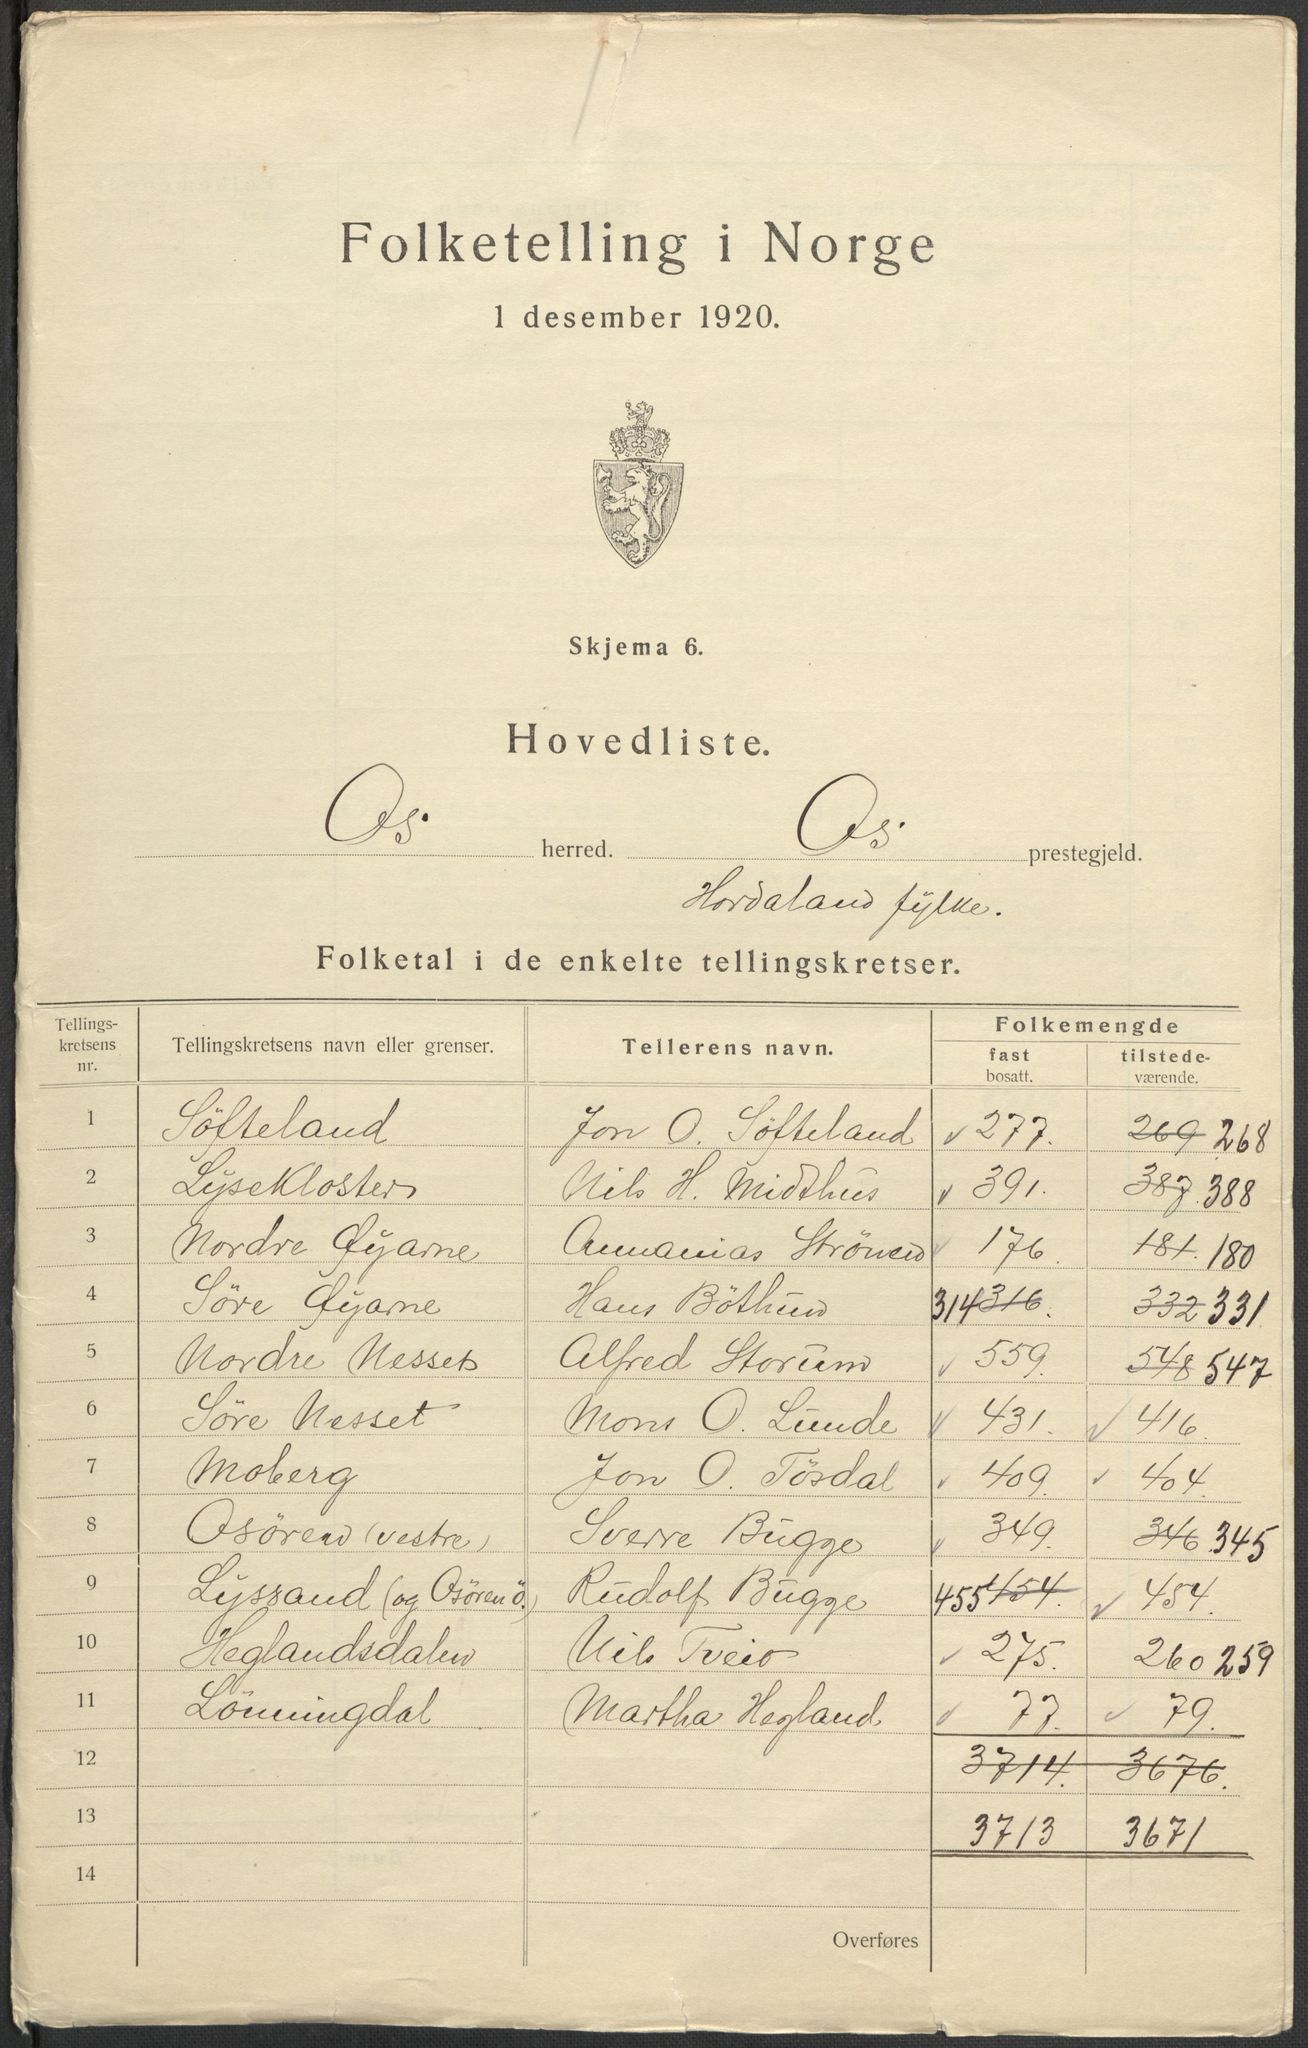 Folketelling i Norge
1 desember 1920.
Skjema 6.
Hovedliste.
Os. herred. Os. prestegjeld.
Hordaland fylke.
Folketal i de enkelte tellingskretser.
Tellings-kretsens nr. Tellingskretsens navn eller grenser. Tellerens navn. Folkemengde
fast bosatt. tilstede-værende.
1 Söfteland Jon O. Söfteland 277. 269 268
2 Lysekloster Nils H. Midthus 391. 387. 388
3 Nordre Øyarne Annanias Strönen 176. 181. 180
4 Söre Øyarne Hans Böthun 314 316. 332 331
5 Nordre Nesset Alfred Storum 559. 548 547
6 Söre Nesset Mons O. Lunde 431. 416.
7 Moberg Jon O. Tösdal 409. 404.
8 Osören (vestre) Sverre Bugge 349. 346. 345
9 Lyssand (og Osören ö.) Rudolf Bugge 455 454. 454.
10 Heglandsdalen Nils Tveit 275. 260 259
11 Lönningdal Martha Hegland 77. 79.
12 3714. 3676.
13 3713 3671
14
Overføres